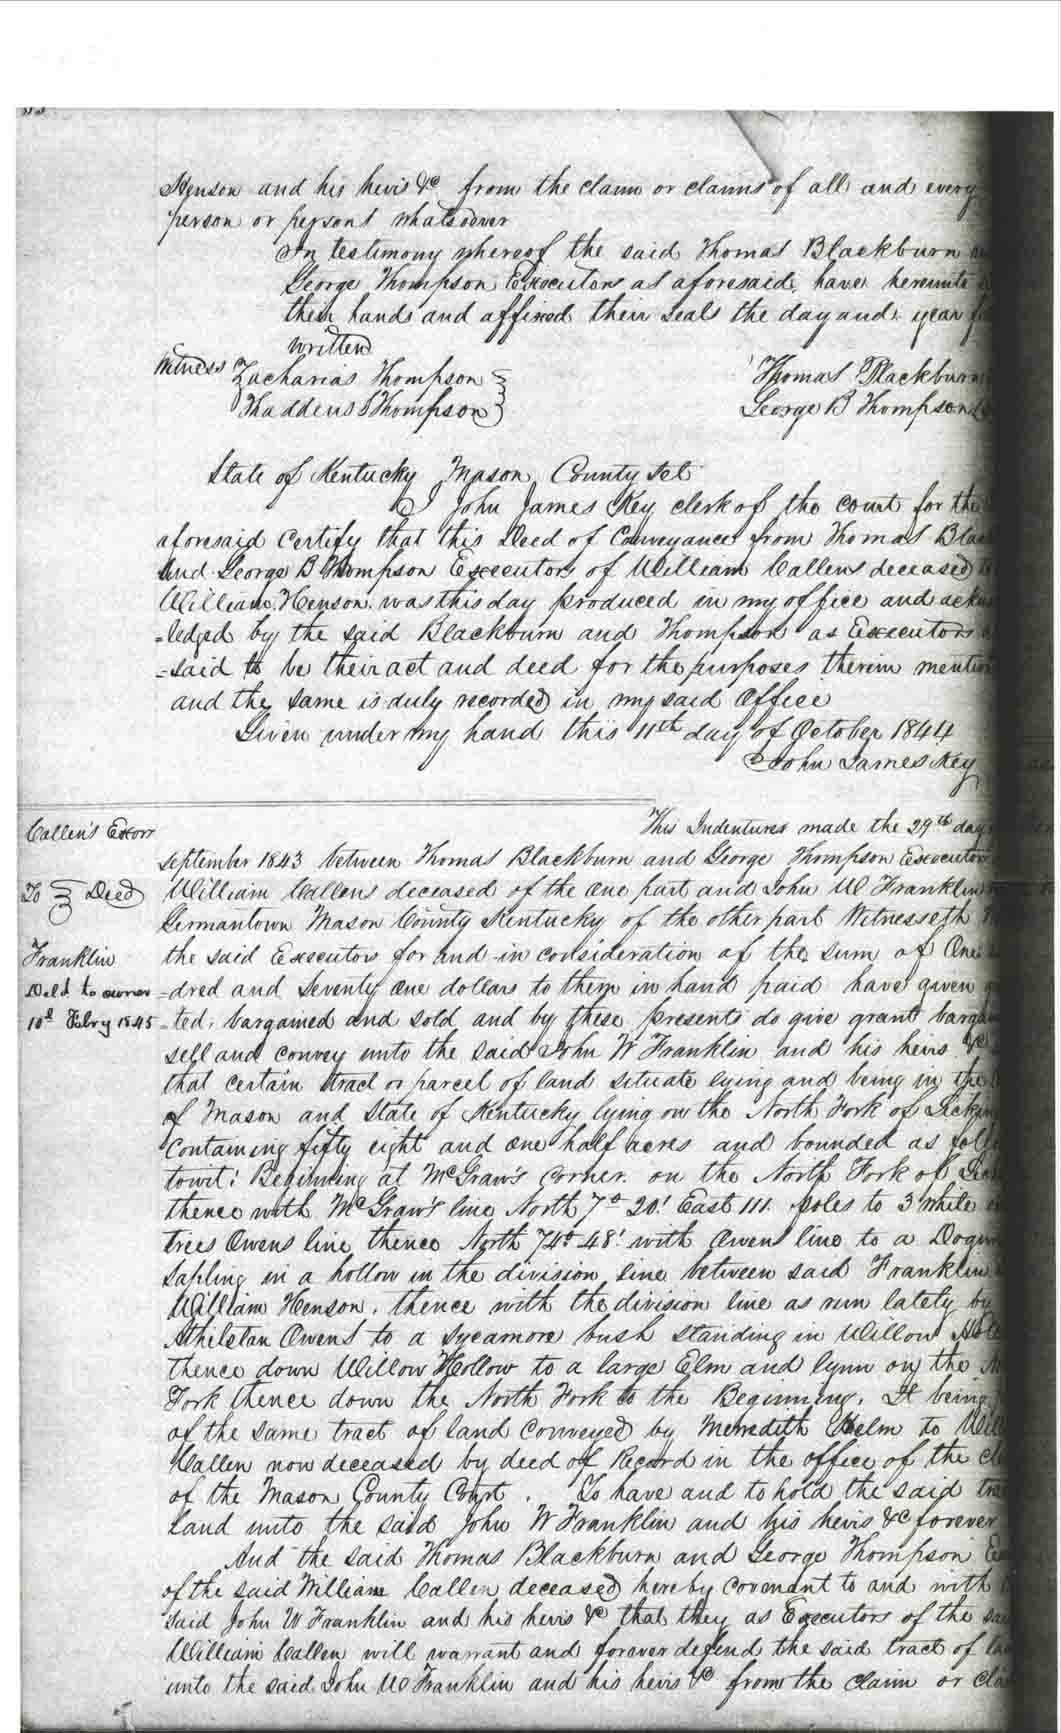 Henson and his heirs &c from the claim or claims of all and every
person or persons whatsoever
In testimony whereof the said Thomas Blackburn
George Thompson Executors as aforesaid, have hereunto
their hands and affixed their seals the day and year
written
Witness Zacharias Thompson
Thaddeus Thompson
Thomas Blackburn
George B Thompson
State of Kentucky Mason County Sct
I John James Key clerk of the court for the
aforesaid certify that this Deed of Conveyance from Thomas Blac
And George B Thompson Executors of William Callens deceased
William Henson was this day produced in my office and ackn
-ledged by the said Blackburn and Thompson as Executors
-said to be their act and deed for the purposes therein mention
and the same is duly recorded in my said office
Given under my hand this 11th day of October 1844
John James Key
Callen's Exors
To Deed
Franklin
Deld to owner
10th Febry 1845
This Indenture made the 29th day
September 1843 between Thomas Blackburn and George Thompson Executors
William Callens deceased of the one part and John W Franklin
Germantown Mason County Kentucky of the other part Witnesseth
the said Executors for and in consideration of the sum of One
-dred and Seventy one dollars to them in hand paid have given
-ted, bargained and sold and by these presents do give grant barga
sell and convey unto the said John W Franklin and his heirs &c
that certain tract or parcel of land situate lying and being in the
of Mason and State of Kentucky lying on the North Fork of Lickin
Containing fifty eight and one half acres and bounded as foll
towit: Beginning at McGraw's corner on the North Fork of Lick
thence with McGraw's line North 7° 20' East 111 poles to 3 white
trees Owens line thence North 74° 48' with Owens line to a Dogw
sapling in a hollow in the division line between said Franklin
William Henson, thence with the division line as run lately by
Athelstan Owens to a Sycamore bush standing in Willow Hol
thence down Willow Hollow to a large Elm and lynn on the N
Fork thence down the North Fork to the Beginning. It being
of the same tract of land conveyed by Meredith Helm to Will
Callen now deceased by deed of Record in the office of the cl
of the Mason County Court. To have and to hold the said tra
land unto the said John W Franklin and his heirs &c forever
And the said Thomas Blackburn and George Thompson Ex
of the said William Callen deceased hereby covenant to and with
said John W Franklin and his heirs &c that they as Executors of the sa
William Callen will warrant and forever defend the said tract of la
unto the said John W Franklin and his heirs &c from the claim or cla